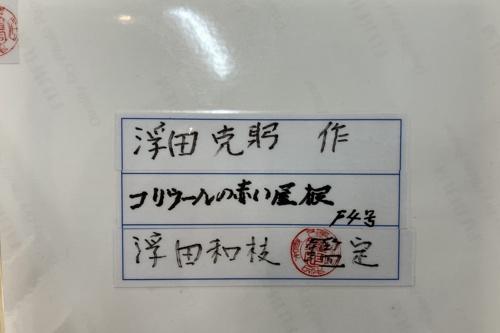 浮田克躬 作
コリウールの赤い屋根
F4号
浮田和枝 鑑定